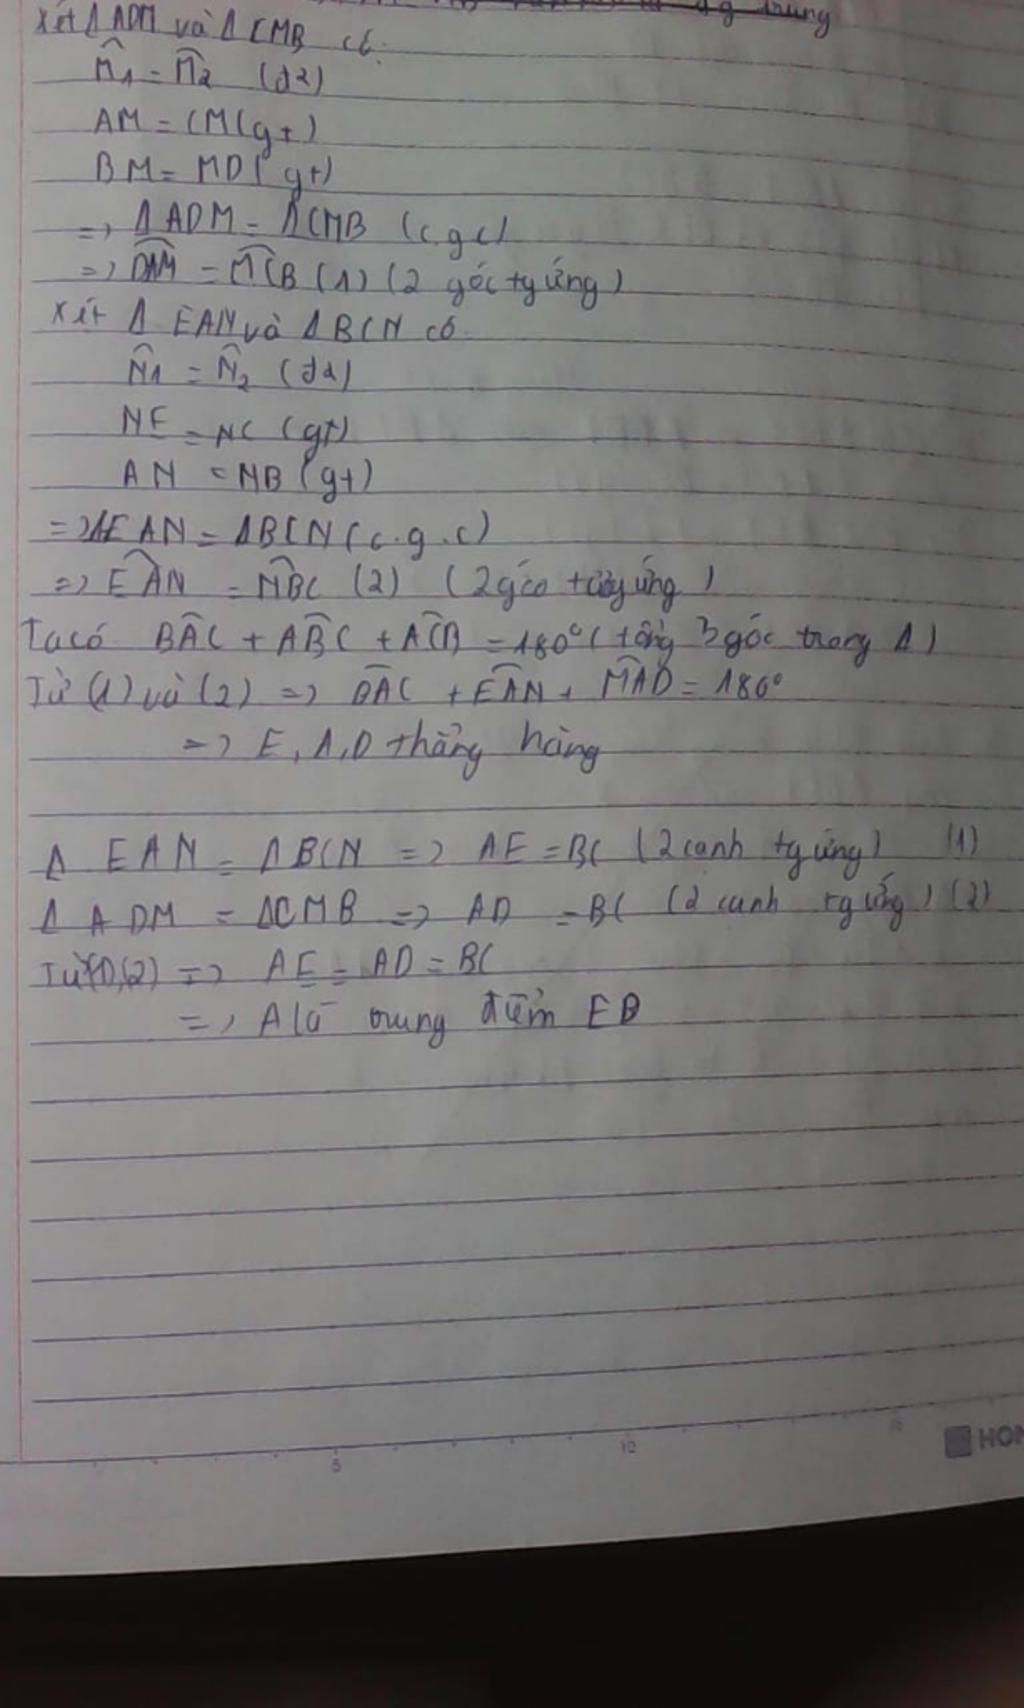 trung
Xét Δ ADM và Δ CMB có:
M̂1 = M̂2 (đ2)
AM = CM (gt)
BM = MD (gt)
=> Δ ADM = Δ CMB (c.g.c)
=> D̂AM = M̂CB (1) (2 góc tg ứng)
Xét Δ EAN và Δ BCN có
N̂1 = N̂2 (đ2)
NE = NC (gt)
AN = NB (gt)
=> ΔEAN = ΔBCN (c.g.c)
=> ÊAN = N̂BC (2) (2 góc tương ứng)
Ta có BÂC + AB̂C + AĈB = 180° (tổng 3 góc trong Δ)
Từ (1) và (2) => B̂AC + ÊAN + M̂AD = 180°
=> E, A, D thẳng hàng
Δ EAN = Δ BCN => AE = BC (2 cạnh tg ứng) (1)
Δ ADM = ΔCMB => AD = BC (2 cạnh tg ứng) (2)
Từ (1),(2) => AE = AD = BC
=> A là trung điểm ED
5 10 15 HON